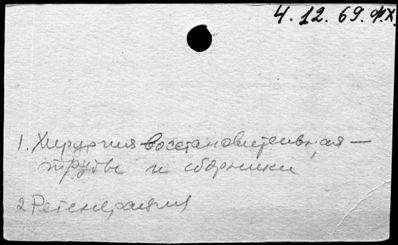 4.12.69. Ф.Х.
1. Хирургия восстановительная —
труды и сборники
2 Регенерация